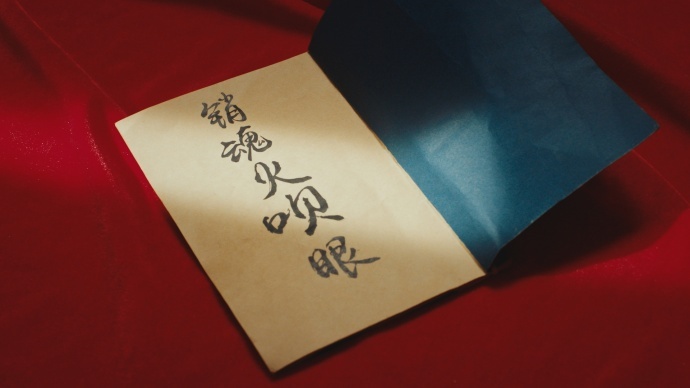 销魂火呗眼